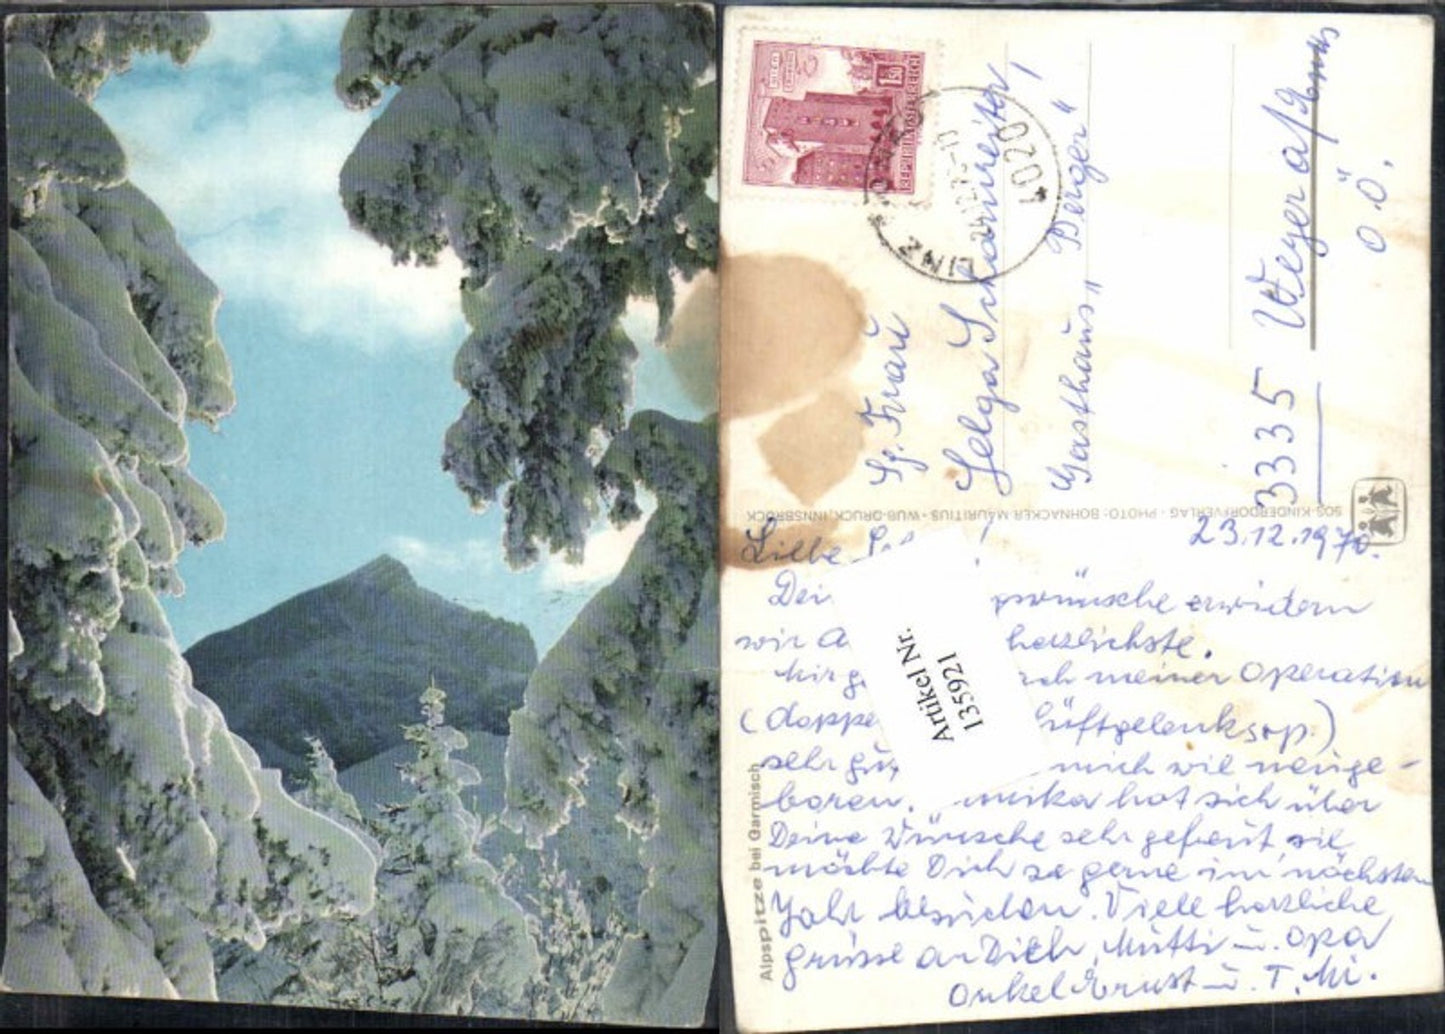 WIEN
1.50
REPUBLIK ÖSTERREICH
LINZ
24.12.70-17
4020
Frau
Helga Scharnreiter,
Gasthaus „Berger"
3335 Weyer a/Enns
O.Ö.
SOS-KINDERDORFVERLAG · PHOTO: BOHNACKER MAURITIUS · WUB-DRUCK, INNSBRUCK
Alpspitze bei Garmisch
Artikel Nr.
135921
23.12.1970.
Liebe
wünsche erwidern
wir herzlichste.
Mir meiner Operation
(doppe Hüftgelenksop.)
sehr gut mich wie neuge-
boren. hat sich über
Deine Wünsche sehr gefreut, sie
möchte Dich so gerne im nächsten
Jahr besuchen. Viele herzliche
grüsse an Dich, Mutti u. Opa
Onkel Ernst u. T. Mi.